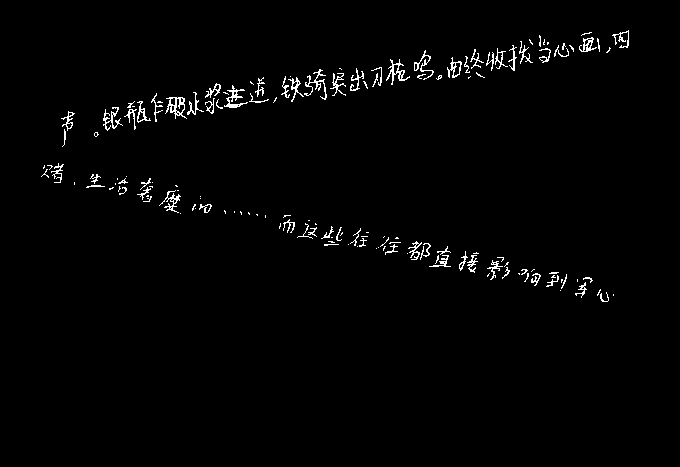 声。银瓶乍破水浆迸,铁骑突出刀枪鸣。曲终收拨当心画,四
赌、生活奢靡的……而这些往往都直接影响到军心